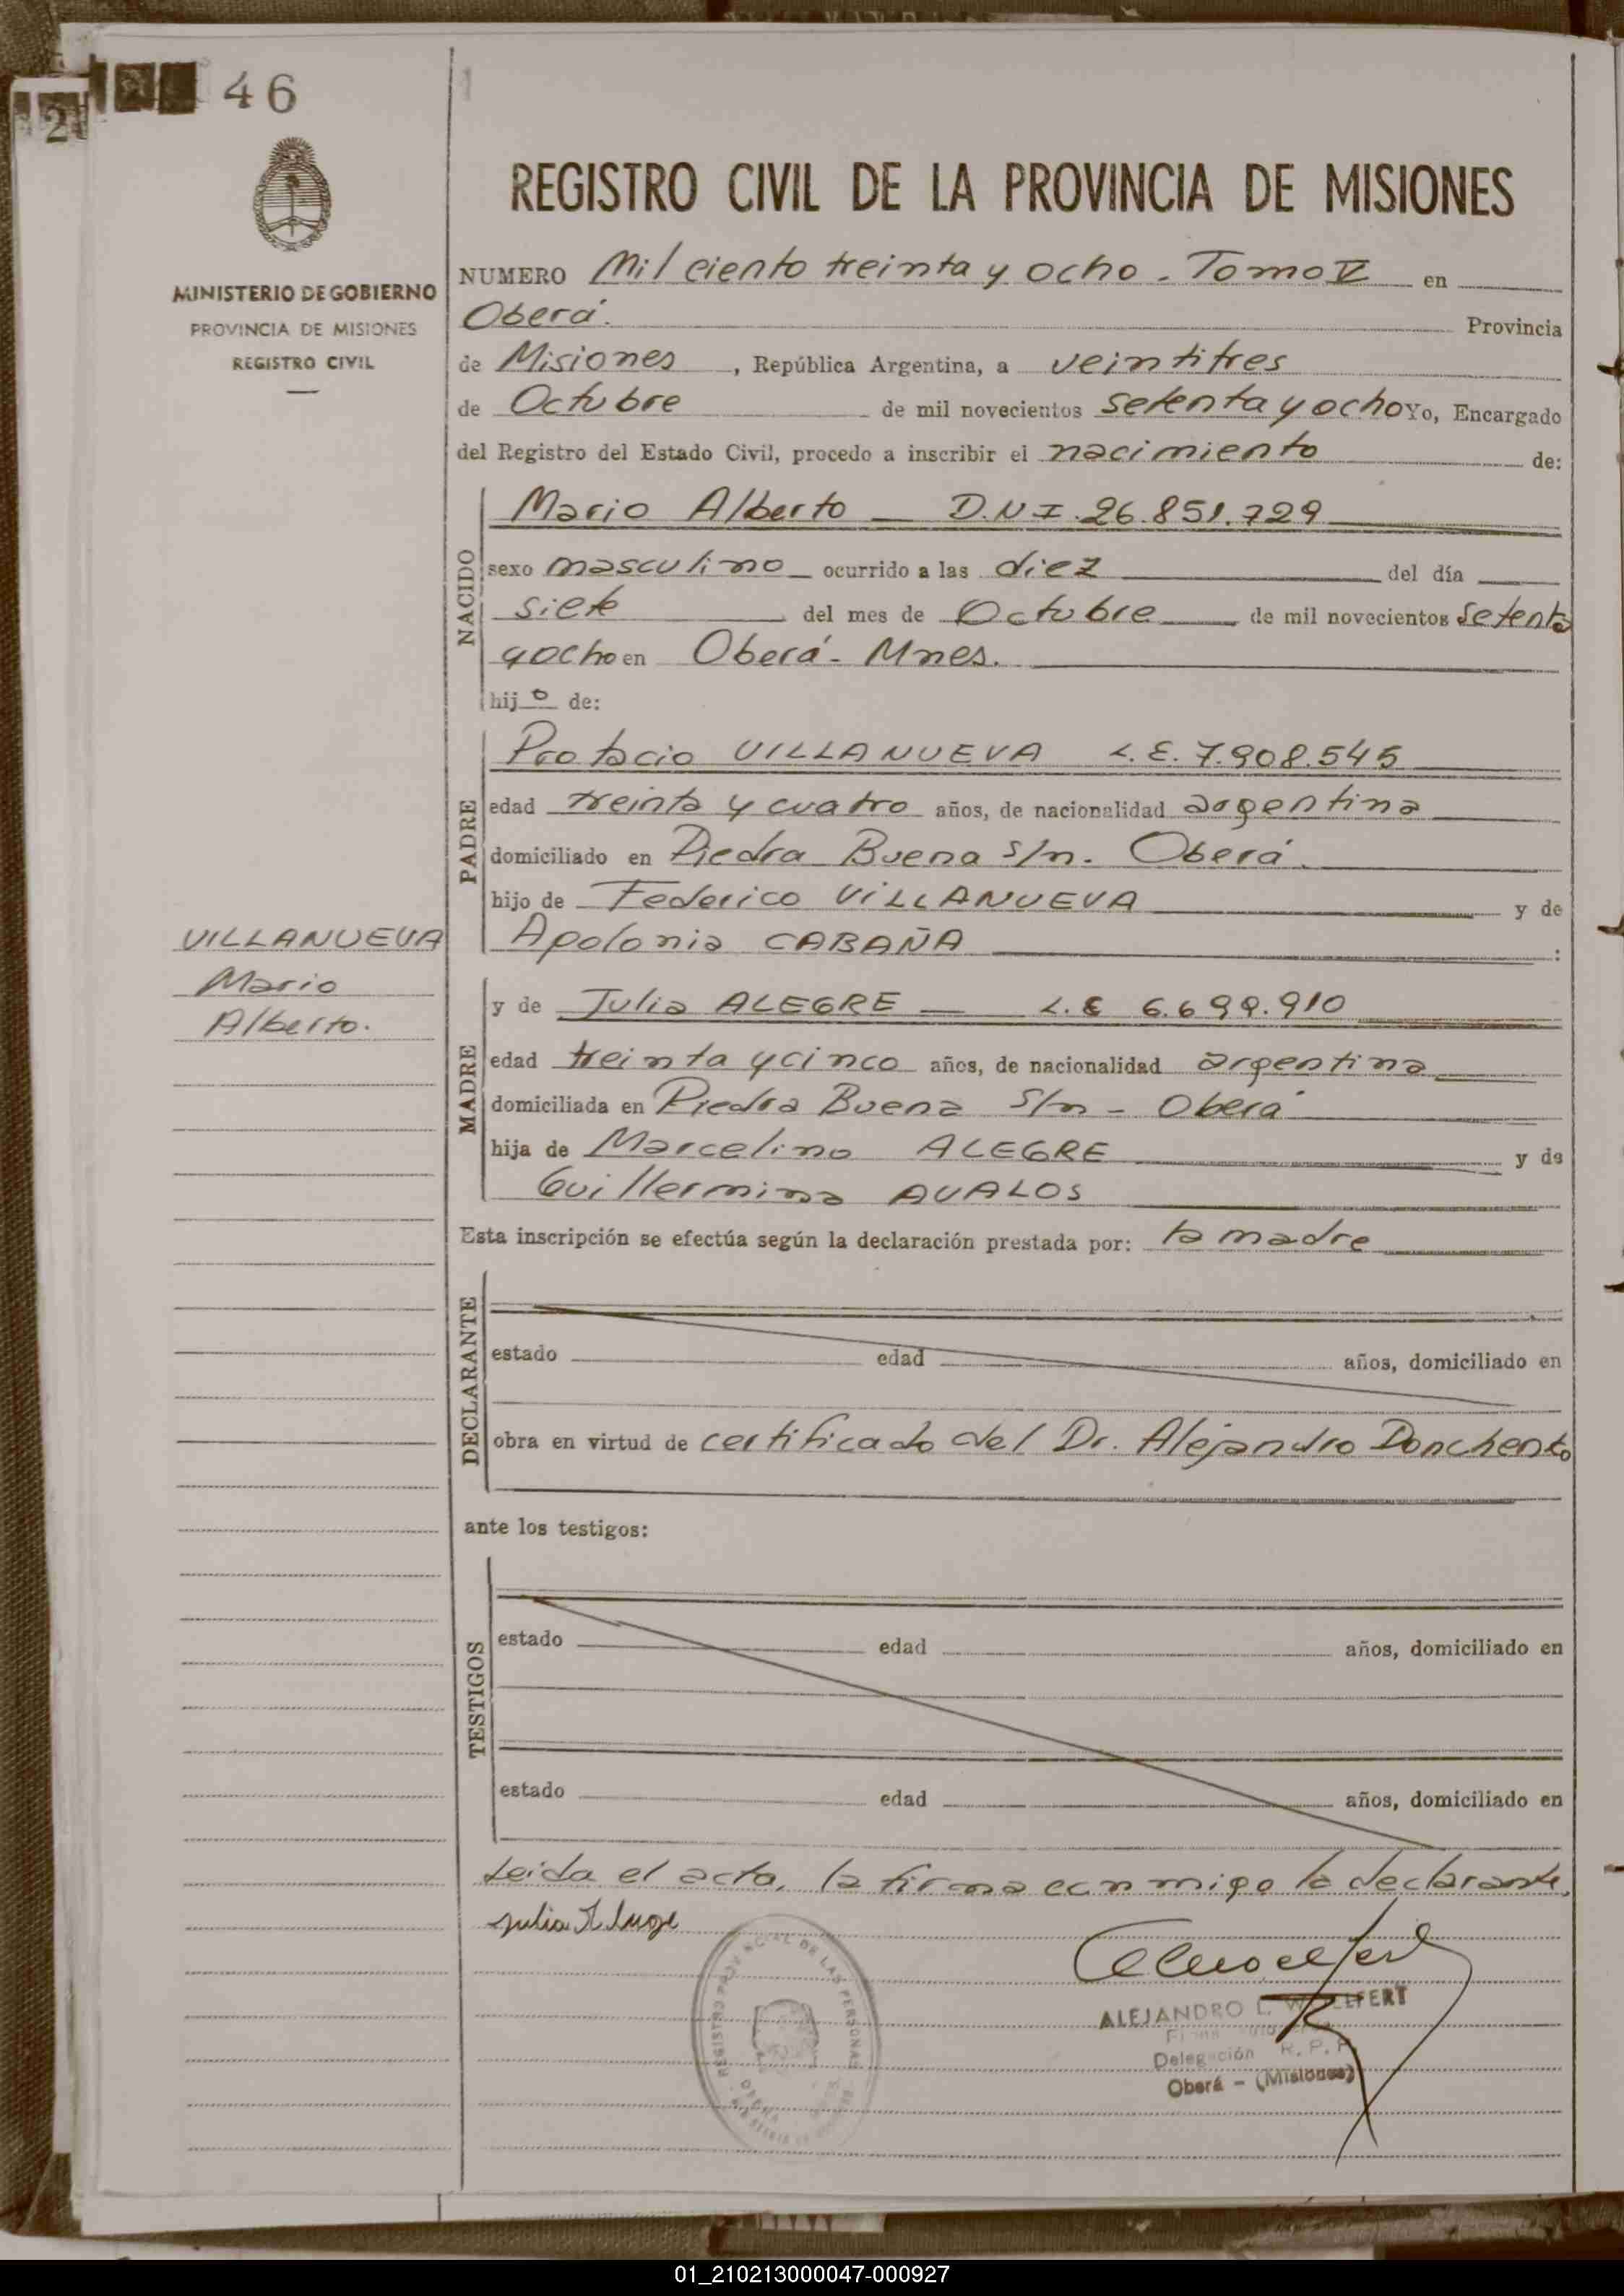 46
2
MINISTERIO DE GOBIERNO
PROVINCIA DE MISIONES
REGISTRO CIVIL
VILLANUEVA
Mario
Alberto.
REGISTRO CIVIL DE LA PROVINCIA DE MISIONES
NUMERO Mil ciento treinta y ocho - Tomo V en
Oberá. Provincia
de Misiones, República Argentina, a veintitres
de Octubre de mil novecientos setenta y ocho Yo, Encargado
del Registro del Estado Civil, procedo a inscribir el nacimiento de:
NACIDO
Mario Alberto — D.N.I. 26.851.729
sexo masculino ocurrido a las diez del día
siete del mes de Octubre de mil novecientos setenta
y ocho en Oberá - Mnes.
hijo de:
PADRE
Protacio VILLANUEVA L.E. 7.908.545
edad treinta y cuatro años, de nacionalidad argentina
domiciliado en Piedra Buena s/n. Oberá.
hijo de Federico VILLANUEVA y de
Apolonia CABAÑA :
MADRE
y de Julia ALEGRE — L.E 6.699.910
edad treinta y cinco años, de nacionalidad argentina
domiciliada en Piedra Buena s/n - Oberá
hija de Marcelino ALEGRE y de
Guillermina AVALOS
Esta inscripción se efectúa según la declaración prestada por: la madre
DECLARANTE
estado edad años, domiciliado en
obra en virtud de certificado del Dr. Alejandro Donchenko
ante los testigos:
TESTIGOS
estado edad años, domiciliado en
estado edad años, domiciliado en
Leida el acta, la firma conmigo la declarante.
Julia
REGISTRO PROVINCIAL DE LAS PERSONAS
ALEJANDRO L. WOELFERT
Delegación R.P.P
Oberá - (Misiones)
01_210213000047-000927